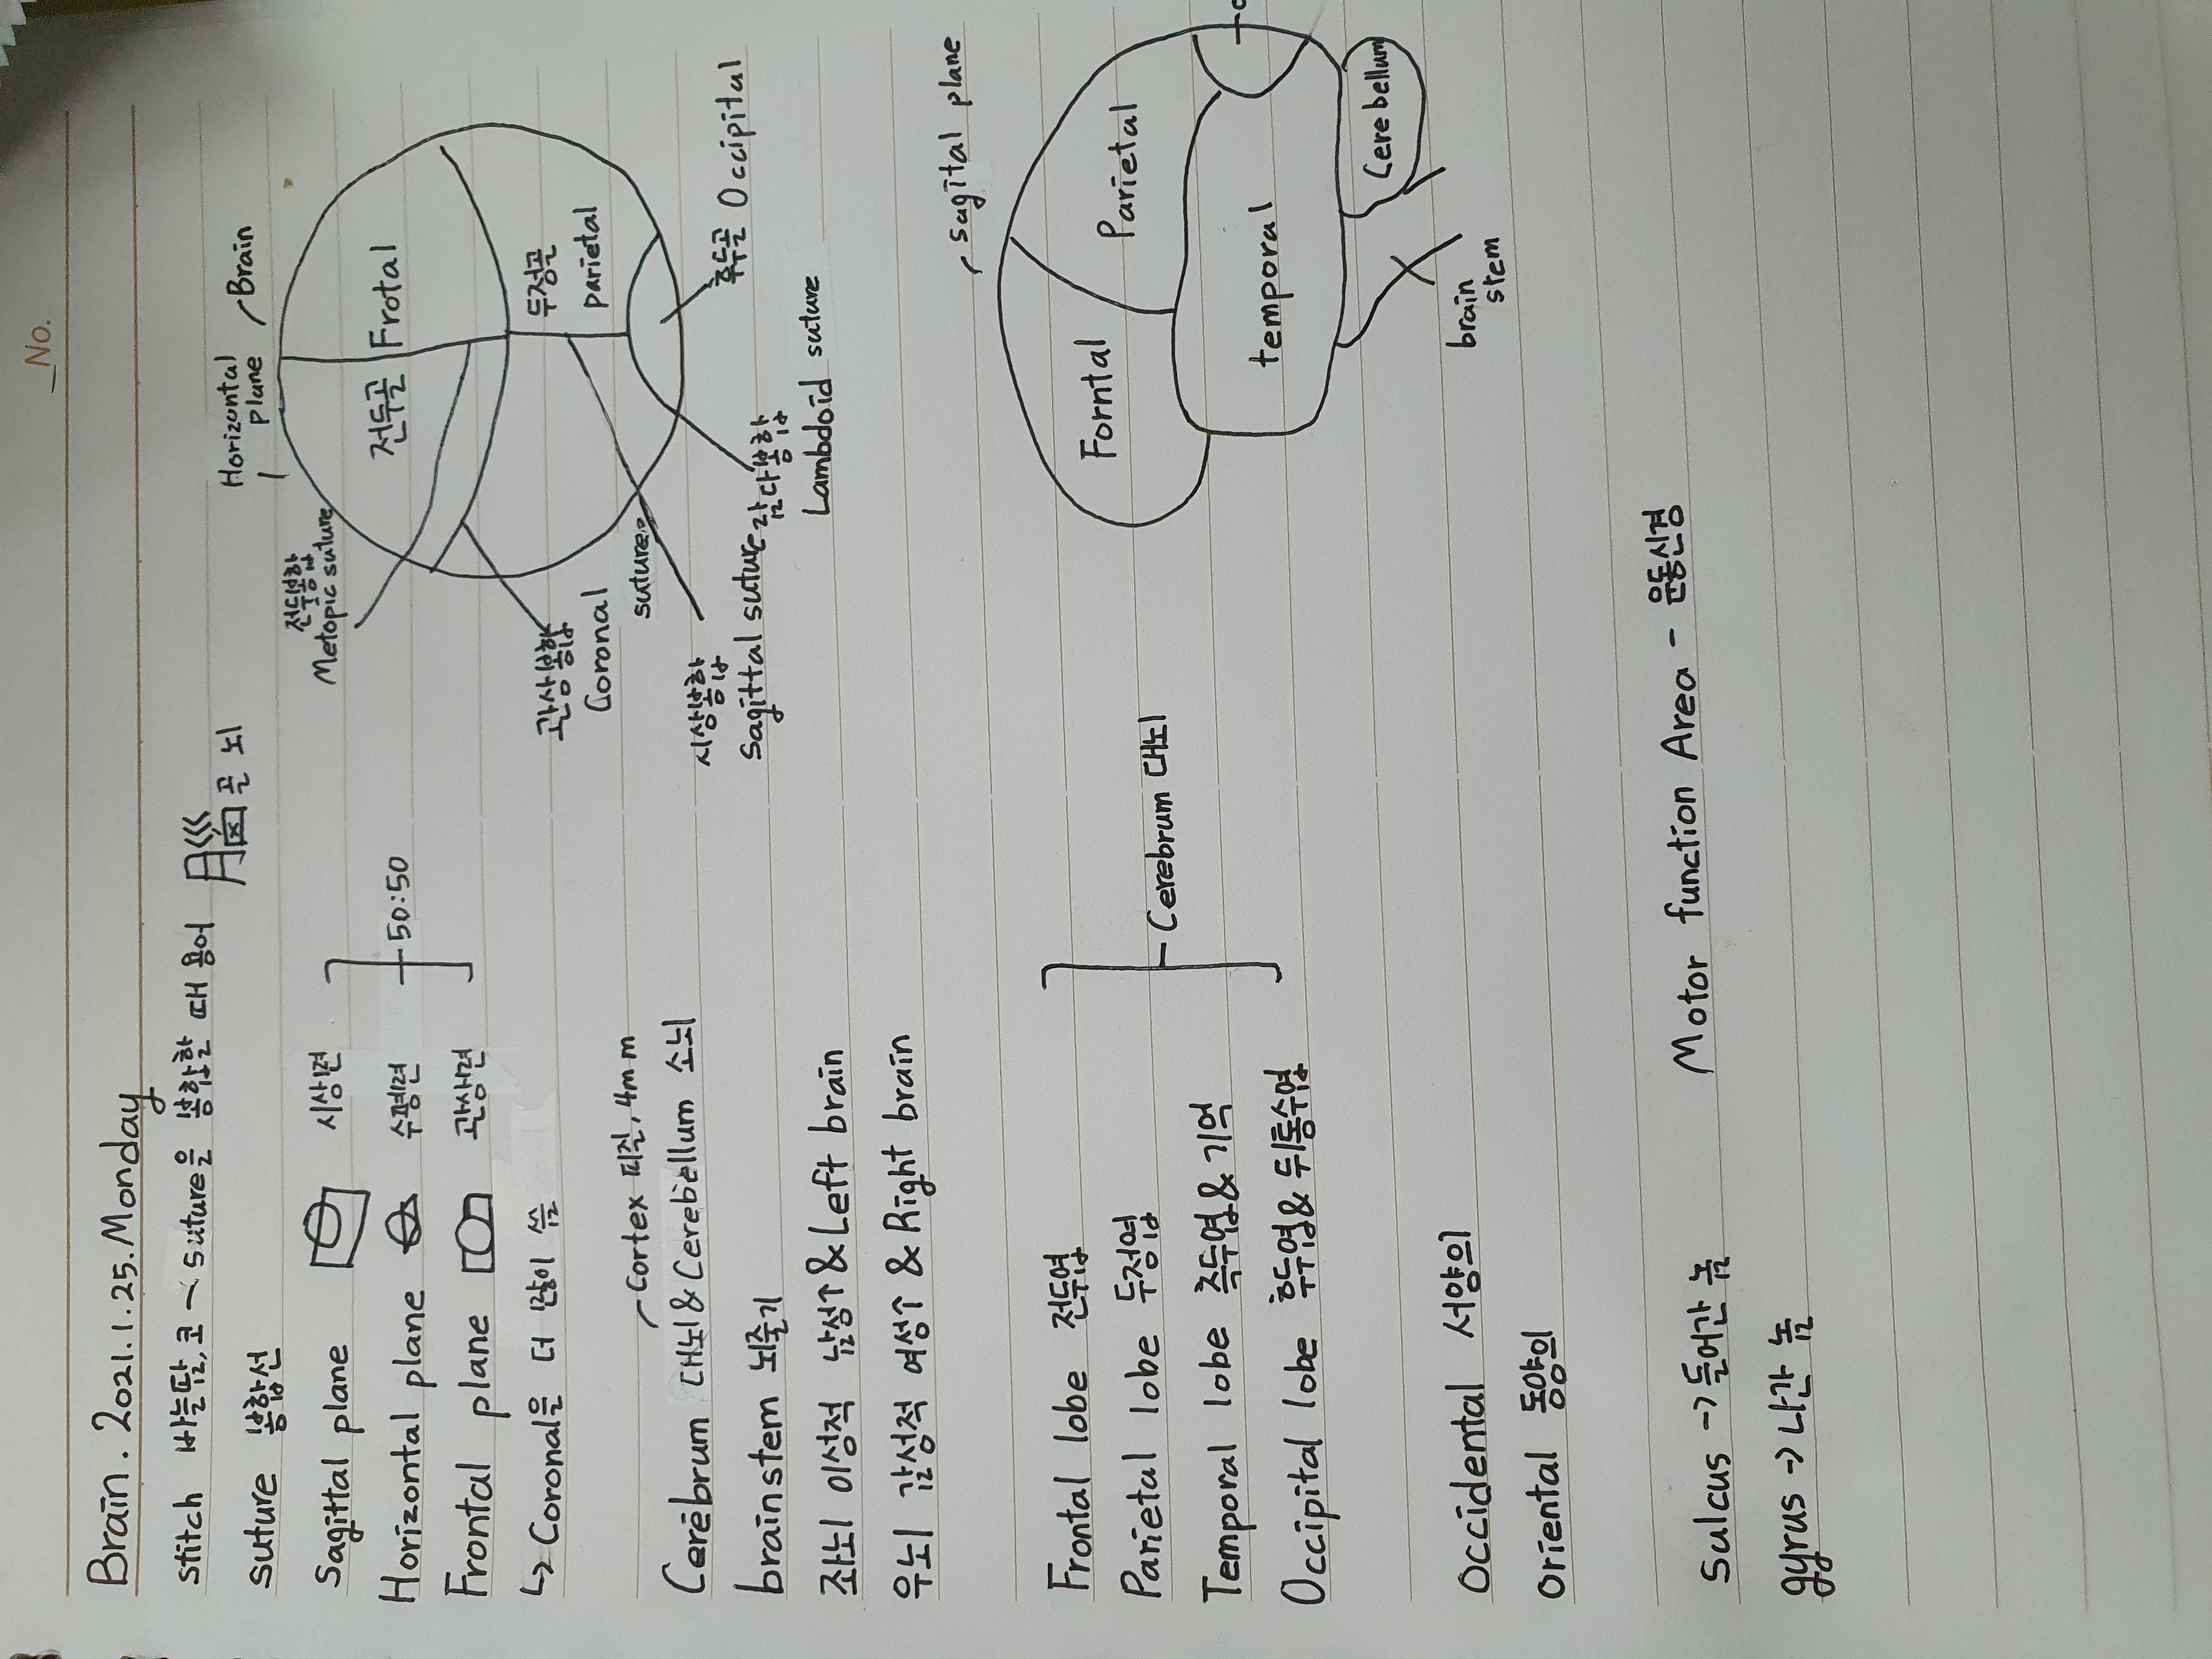 No.
Brain. 2021.1.25.Monday
stitch 바늘땀, 코 suture을 봉합할 때 용어
골 뇌
suture 봉합선
Sagittal plane 시상면
Horizontal plane 수평면
50:50
Frontal plane 관상면
↳ Coronal을 더 많이 씀
Cortex 피질, 4mm
Cerebrum 대뇌 & Cerebellum 소뇌
brainstem 뇌줄기
좌뇌 이성적 남성↑ & Left brain
우뇌 감성적 여성↑ & Right brain
Horizontal plane
Brain
전두골 Frotal
두정골 parietal
후두골 Occipital
전두봉합
Metopic suture
관상봉합
Coronal suture
시상봉합
Sagittal suture
람다봉합
Lambdoid suture
Frontal lobe 전두엽
Parietal lobe 두정엽
Temporal lobe 측두엽 & 기억
Occipital lobe 후두엽 & 뒤통수엽
Cerebrum 대뇌
sagital plane
Forntal
Parietal
temporal
Cerebellum
brain stem
Occidental 서양의
Oriental 동양의
Sulcus → 들어간 놈
gyrus → 나간 놈
Motor function Area - 운동신경